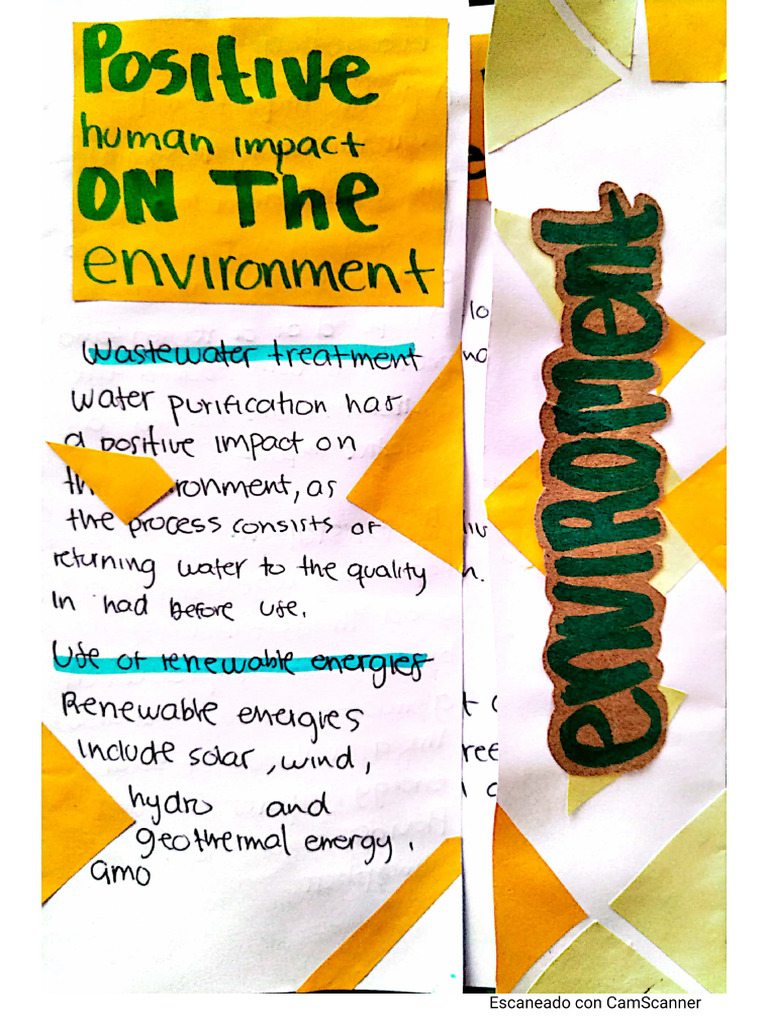 Positive
human impact
ON The
environment
Wastewater treatment
Water purification has
a positive impact on
ronment, as
the process consists of
returning water to the quality
In had before use.
Use of renewable energies
Renewable energies
include solar, wind,
hydro and
geothermal energy.
amo
enviroment
Escaneado con CamScanner